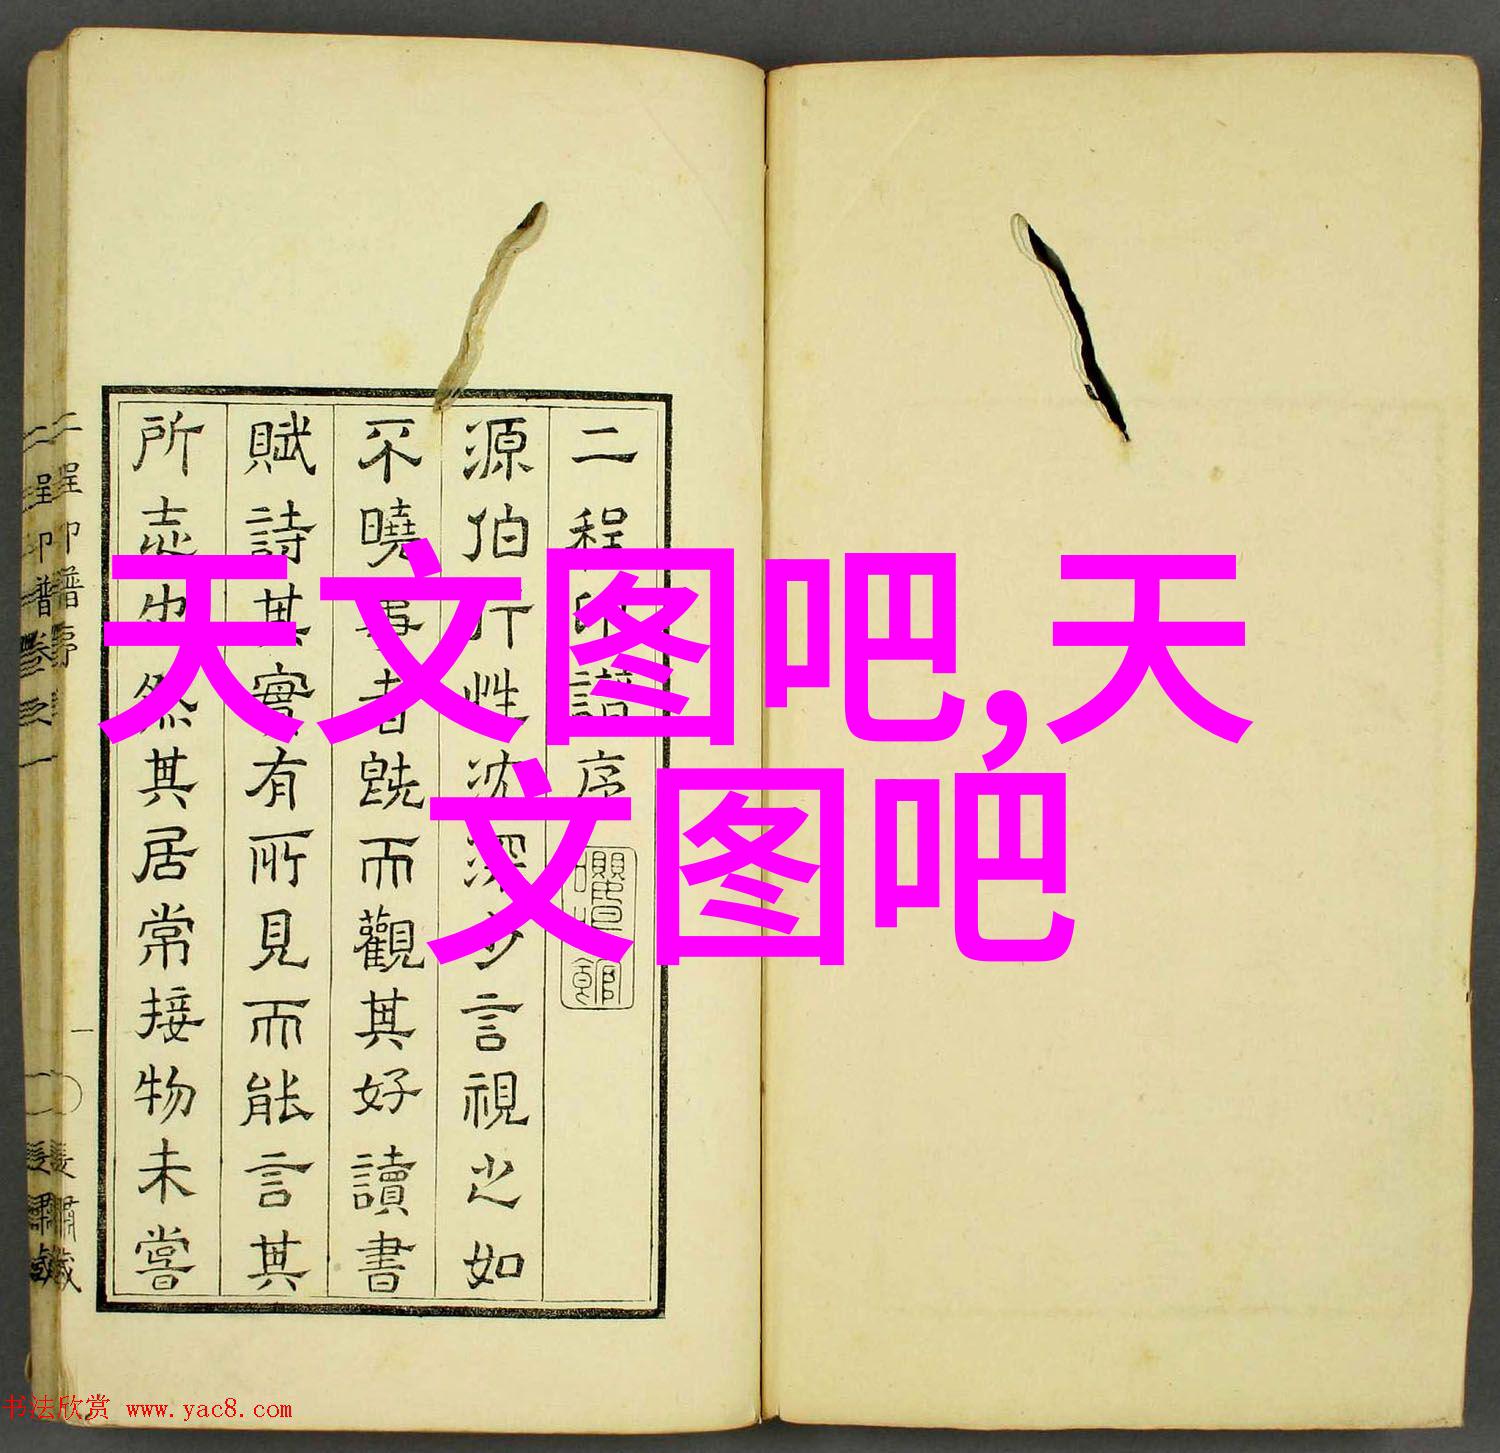 二程印譜序
源伯行性沈深少言視之如
不曉事者旣而觀其好讀書
賦詩其實有所見而能言其
所志也然其居常接物未嘗
天文图吧,天
文图吧
二程印譜序
一
书法欣赏 www.yac8.com